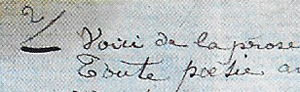 2/ Voici de la prose
Toute poésie an